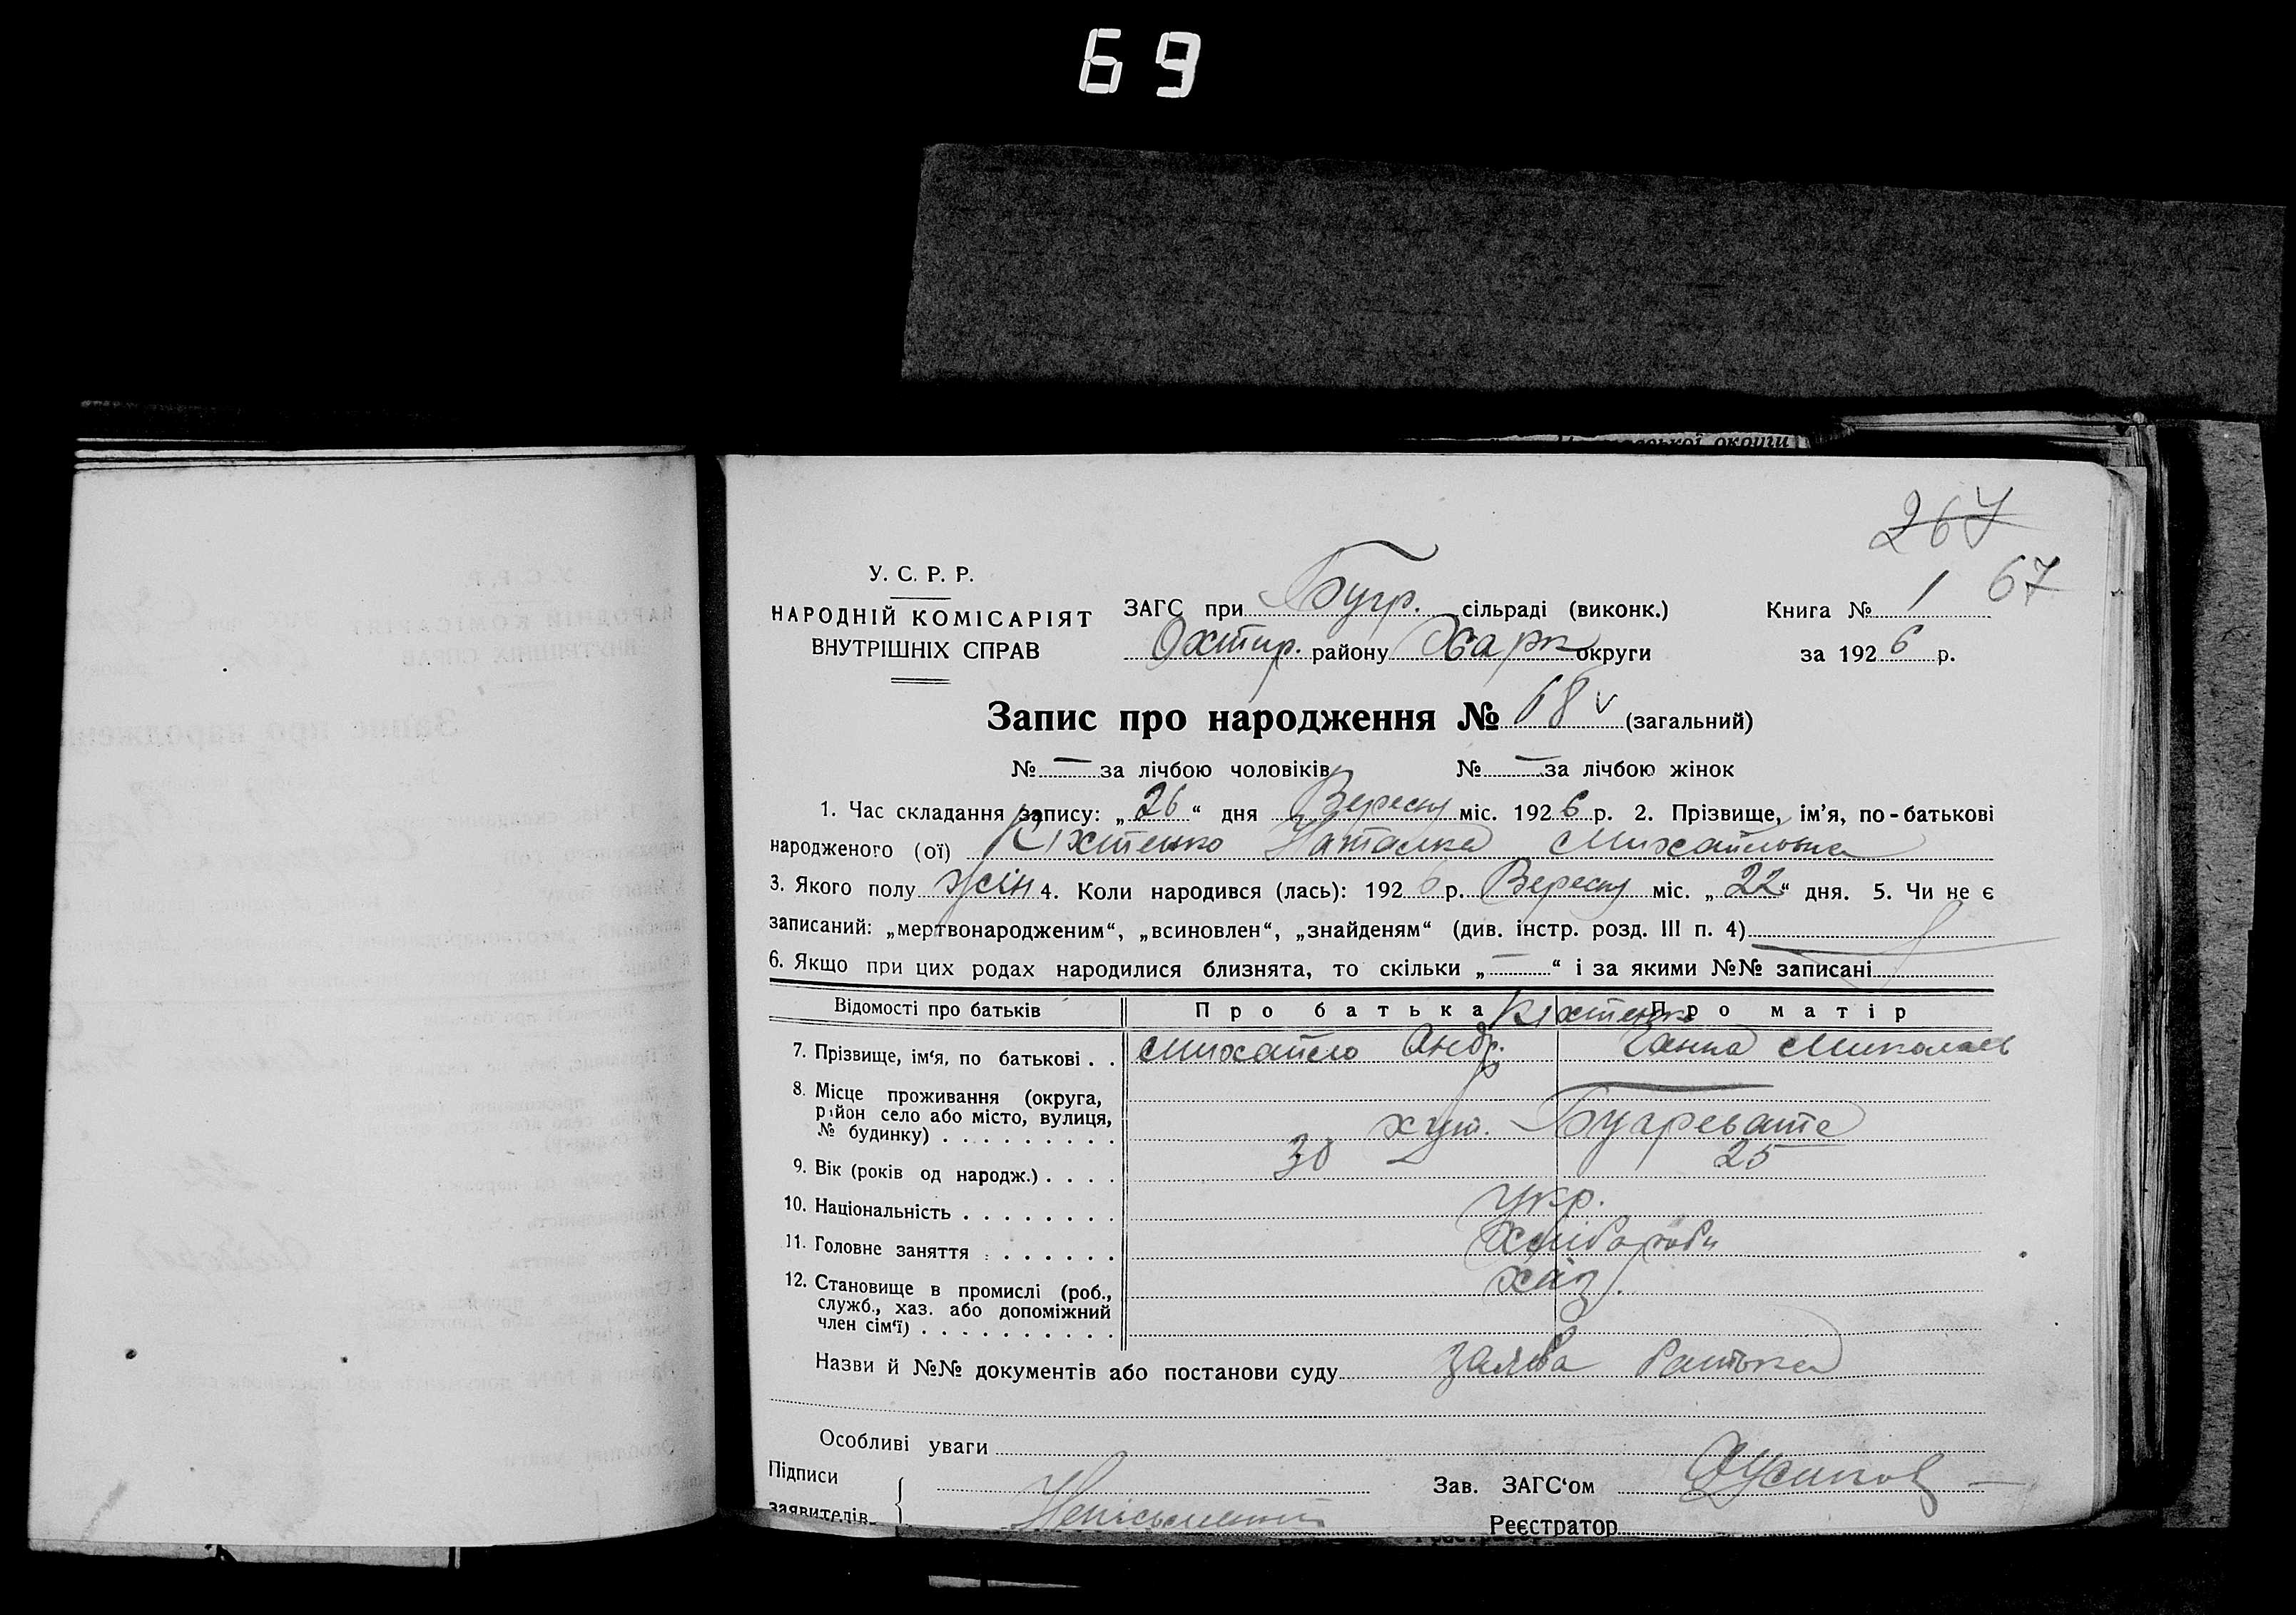 69
ської округи
267
67
У. С. Р. Р.
НАРОДНІЙ КОМІСАРІЯТ
ВНУТРІШНІХ СПРАВ
ЗАГС при Бугр. сільраді (виконк.)
Охтир. району Харк округи
Книга № 1
за 1926 р.
Запис про народження № 68 v (загальний)
№ — за лічбою чоловіків № — за лічбою жінок
1. Час складання запису: „26“ дня Вересня міс. 1926 р. 2. Прізвище, ім’я, по-батькові
народженого (ої) Кіхтенко Наталка Михайловна
3. Якого полу жін 4. Коли народився (лась): 1926 р. Вересня міс. „22“ дня. 5. Чи не є
записаний: „мертвонародженим“, „всиновлен“, „знайденям“ (див. інстр. розд. III п. 4)
6. Якщо при цих родах народилися близнята, то скільки „—“ і за якими №№ записані
Відомості про батьків Про батька Про матір
Кіхтенко
7. Прізвище, ім‘я, по батькові . . Михайло Андр. Ганна Миколаев
8. Місце проживання (округа,
район село або місто, вулиця,
№ будинку) . . . . . . . . . хут. Бугревате
9. Вік (років од народж.) . . . . 30 25
10. Національність . . . . . . . . укр.
11. Головне заняття . . . . . . . Хлібороби
12. Становище в промислі (роб.,
служб., хаз. або допоміжний
член сім‘ї) . . . . . . . . . . хаз.
Назви й №№ документів або постанови суду заява батька
Особливі уваги
Підписи
заявителів
Неписьменний
Зав. ЗАГС‘ом
Реєстратор